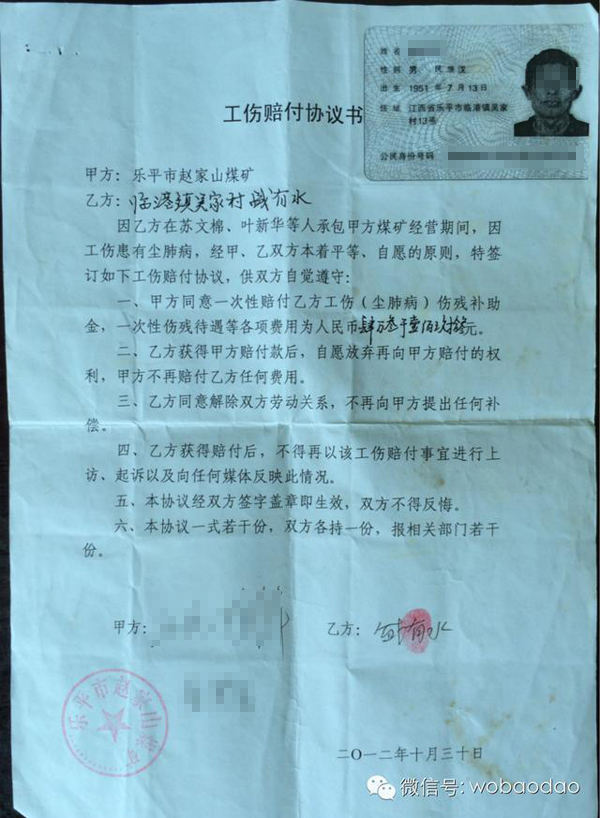 姓名
性别 男 民族汉
出生 1951 年 7 月 13 日
住址 江西省乐平市临港镇吴家
村13号
公民身份号码
工伤赔付协议书
甲方：乐平市赵家山煤矿
乙方：临港镇吴家村 有水
因乙方在苏文棉、叶新华等人承包甲方煤矿经营期间，因
工伤患有尘肺病，经甲、乙双方本着平等、自愿的原则，特签
订如下工伤赔付协议，供双方自觉遵守：
一、甲方同意一次性赔付乙方工伤（尘肺病）伤残补助
金，一次性伤残待遇等各项费用为人民币肆万叁仟壹佰玖拾元。
二、乙方获得甲方赔付款后，自愿放弃再向甲方赔付的权
利，甲方不再赔付乙方任何费用。
三、乙方同意解除双方劳动关系，不再向甲方提出任何补
偿。
四、乙方获得赔付后，不得再以该工伤赔付事宜进行上
访、起诉以及向任何媒体反映此情况。
五、本协议经双方签字盖章即生效，双方不得反悔。
六、本协议一式若干份，双方各持一份，报相关部门若干
份。
甲方：
乙方： 有水
乐平市赵家山煤矿
二〇一二年十月三十日
微信号: wobaodao